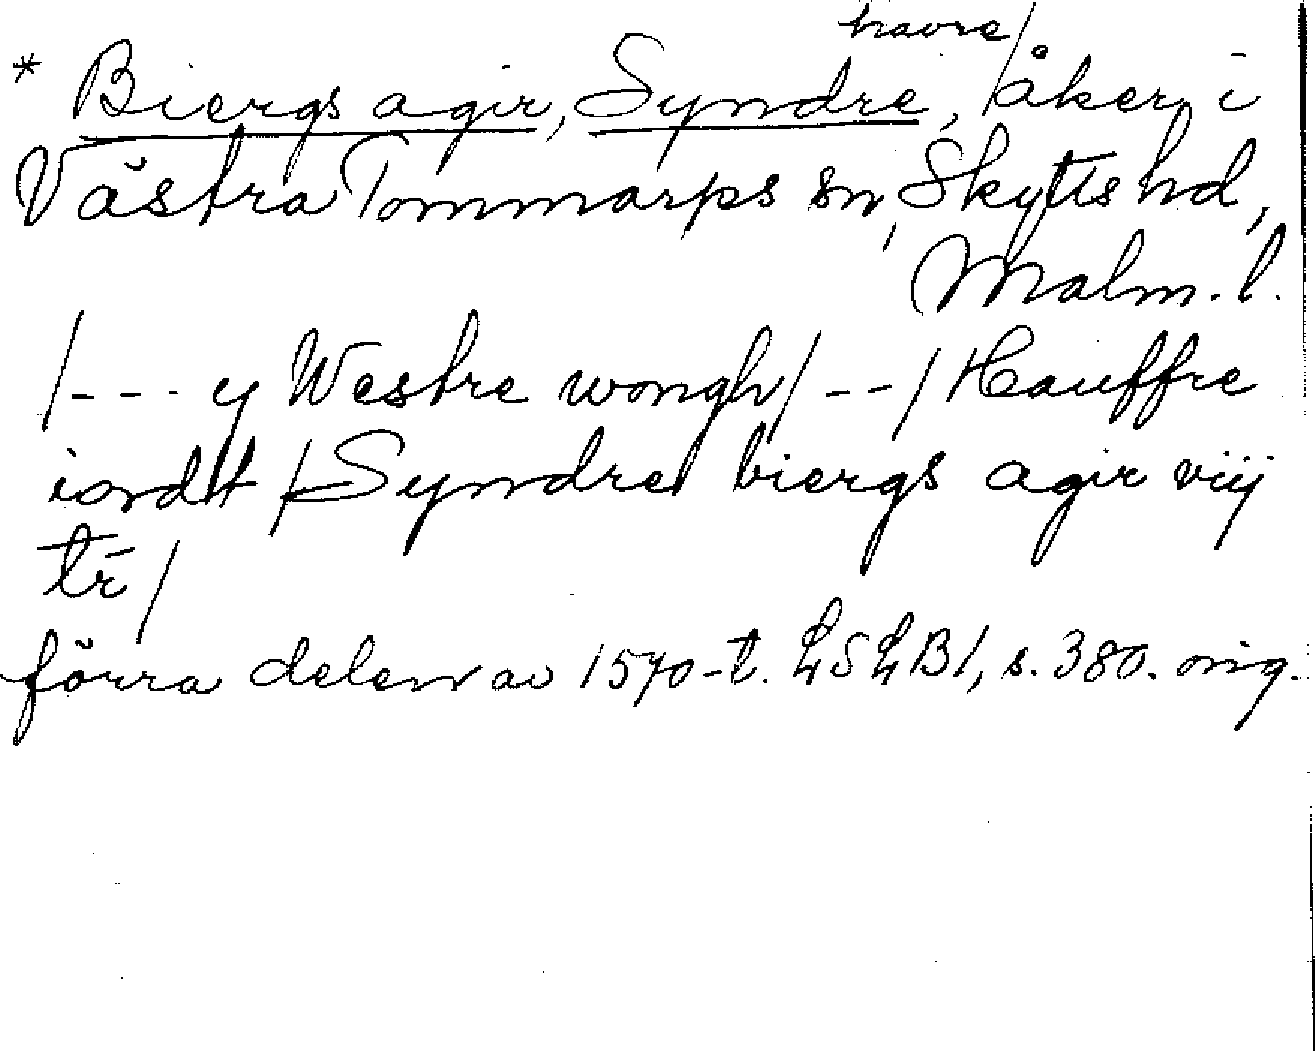 havre/
* Biergs agir, Syndre, /åker i
Västra Tommarps sn, Skytts hd,
Malm. l.
/--- y Westre wongh/ --/ Hauffre
iordtt /Syndre biergs agir viij
tr̄/
förra delen av 1570-t. LSLB1, s. 380. orig.